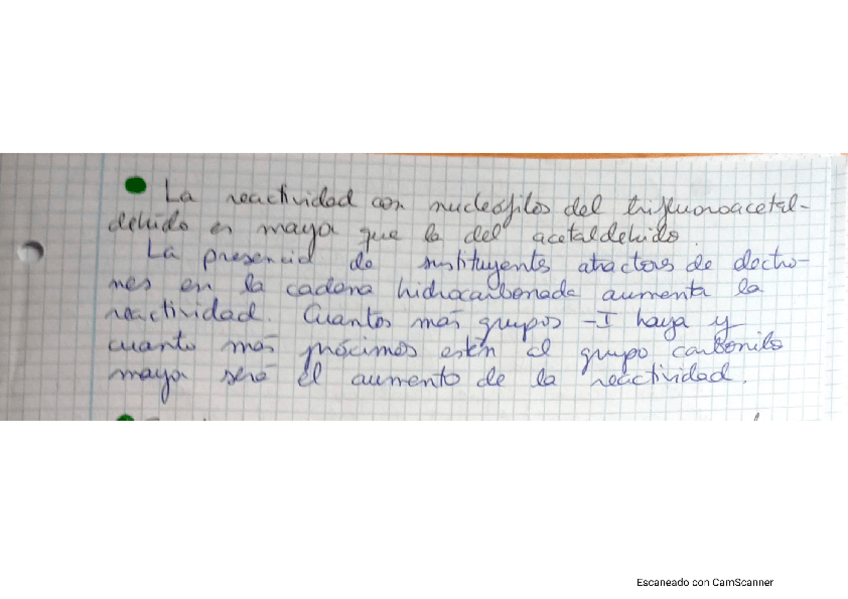 La reactividad con nucleófilos del trifluoroacetal-
dehido es mayor que la del acetaldehido.
La presencia de sustituyents atractores de electro-
nes en la cadena hidrocarbonada aumenta la
reactividad. Cuantos más grupos -I haya y
cuanto más próximos estén al grupo carbonilo
mayor será el aumento de la reactividad.
Escaneado con CamScanner